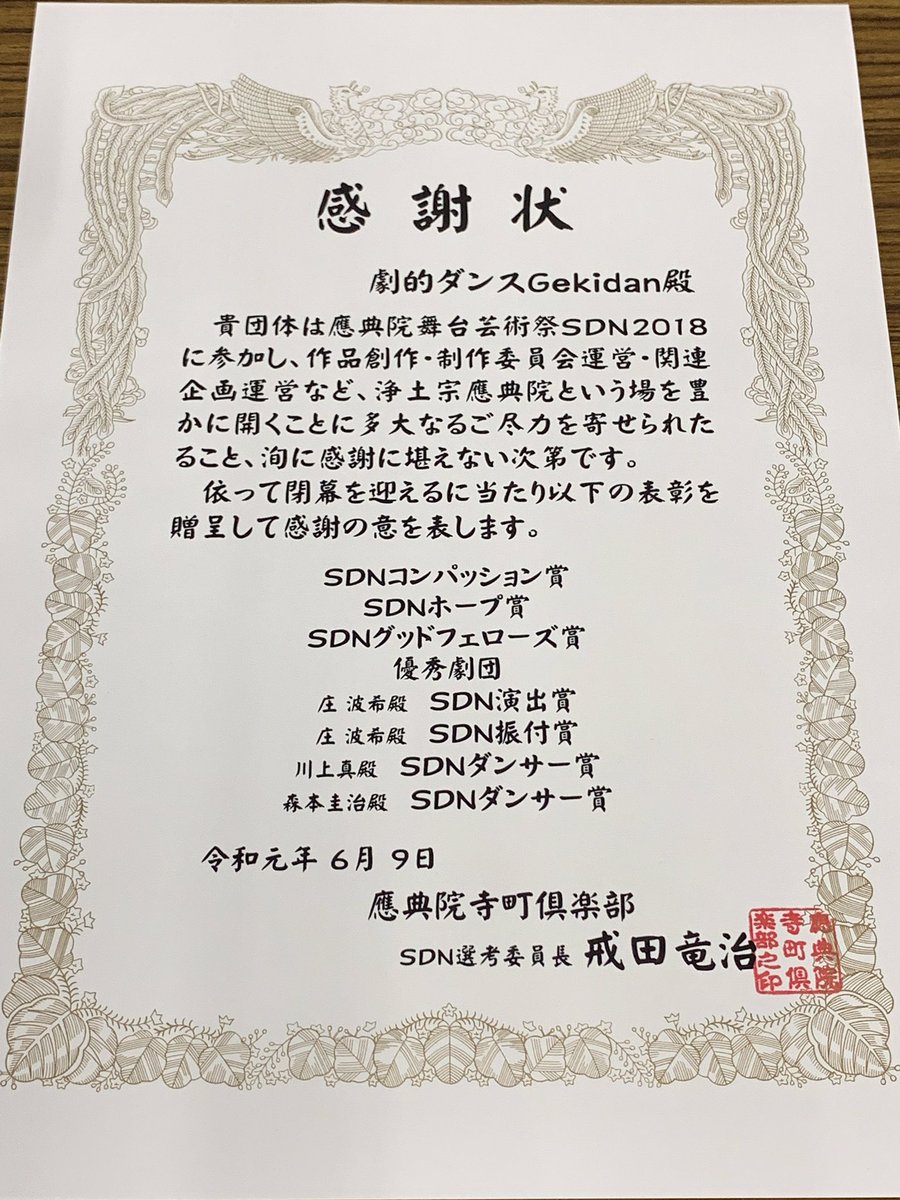 感謝状
劇的ダンスGekidan殿
貴団体は應典院舞台芸術祭SDN2018
に参加し、作品創作・制作委員会運営・関連
企画運営など、浄土宗應典院という場を豊
かに開くことに多大なるご尽力を寄せられた
ること、洵に感謝に堪えない次第です。
依って閉幕を迎えるに当たり以下の表彰を
贈呈して感謝の意を表します。
SDNコンパッション賞
SDNホープ賞
SDNグッドフェローズ賞
優秀劇団
庄 波希殿 SDN演出賞
庄 波希殿 SDN振付賞
川上真殿 SDNダンサー賞
森本圭治殿 SDNダンサー賞
令和元年 6月 9日
應典院寺町倶楽部
SDN選考委員長 戒田竜治
應典院
寺町倶
楽部之印